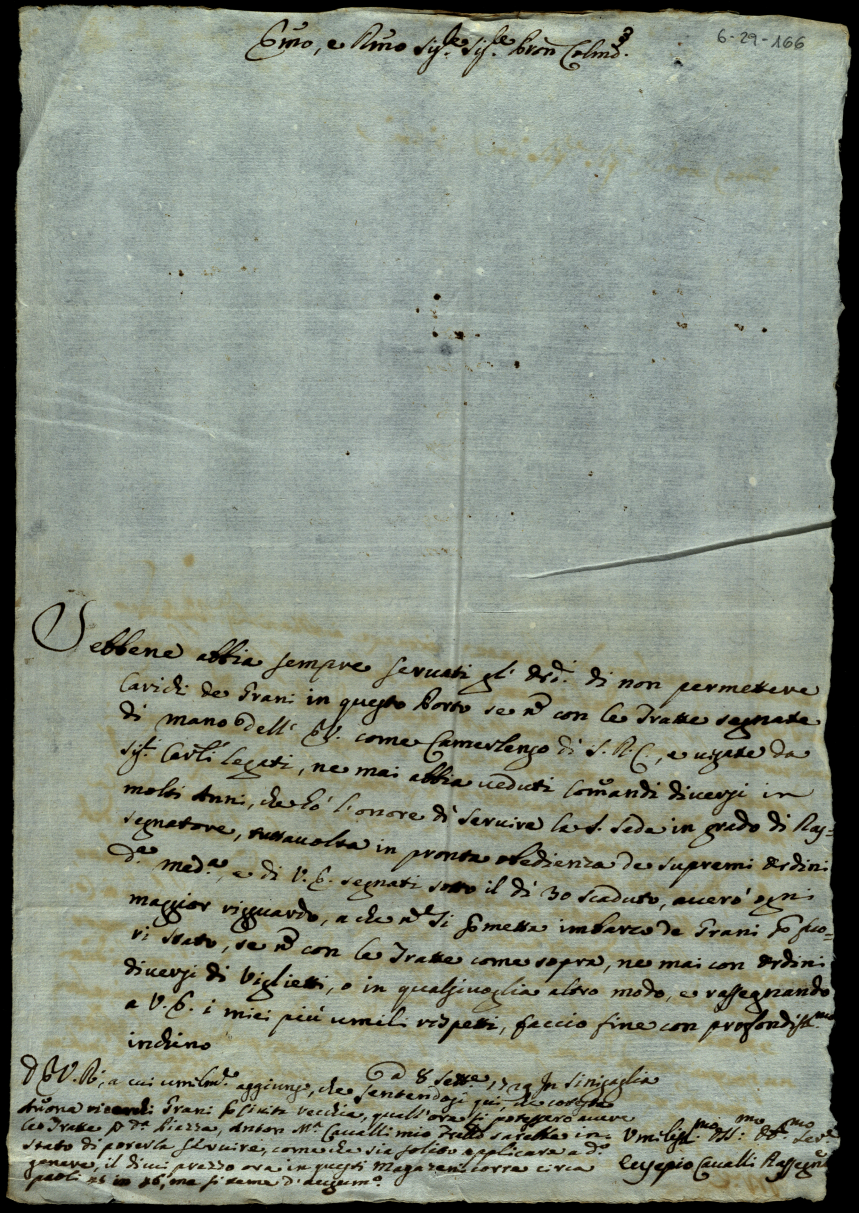 6-29-166
Emo, e Rmo Sig.re Sig.re Pron Colmo
Sebbene abbia sempre servati gl' Ord.i di non permettere
Carichi de Grani in questo Porto se nō con le Tratte segnate
di mano dell' E.V. come Camerlengo di S.R.C., e vizate da
Sig.i Card.li Legati, ne mai abbia veduti Comandi diversi in
molti Anni, che hò l'onore di servire la S. Sede in grado di Ras=
segnatore, tuttavolta in pronta obedienza de supremi Ordini
d.a med.a, e di V.E. segnati sotto il di 30 scaduto, averò ogni
maggior risguardo, a che nō si pmetta imbarco de Grani p fuo=
ri Stato, se nō con le Tratte come sopra, ne mai con Ordini
diversi di Viglietti, o in qualsivoglia altro modo, e rassegnando
a V.E. i miei più umili rispetti, faccio fine con profondiss.mo
inchino
D E.V. R.a, a cui umilm.e aggiungo, che sentendosi qui, che cotesta
a 8 Sett.e 1729 In Sinigaglia
Grani p Civita Vecchia, qual'ora si potessero avere
le Tratte p d.a Piazza, Anton M.a Cavalli mio Frãllo sarebbe in
stato di poterla servire, come che sia solito applicare a d.o
genere, il di cui prezzo ora in questi Magazeni corre circa
paoli 25 in 26, ma si teme d'augum.o
Umiliss.mo
Eusepio Cavalli Rasseg.re